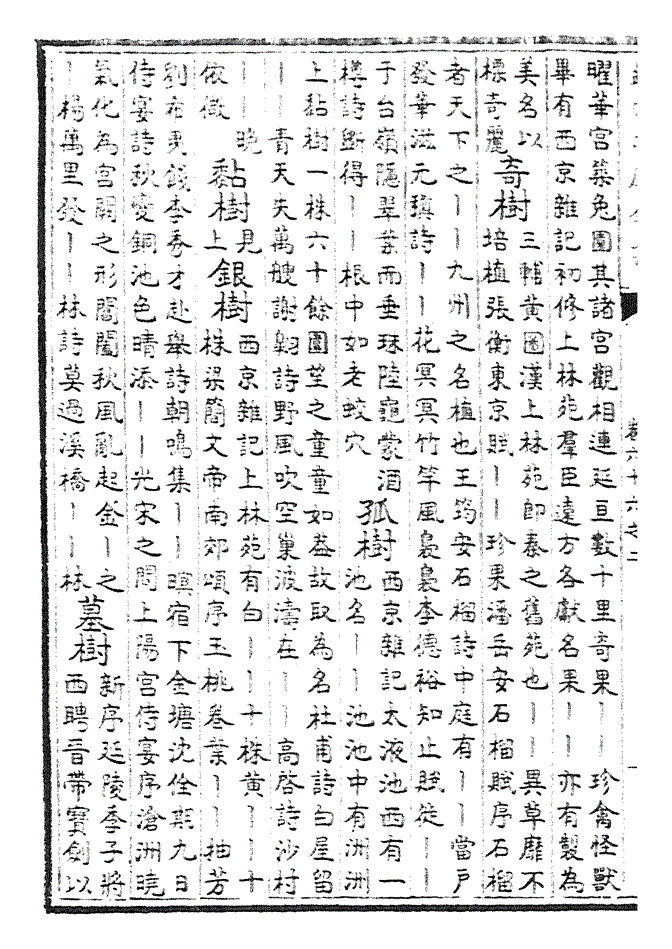 曜華宮築兔園其諸宮觀相連延亘數十里奇果丨丨珍禽怪獸
畢有西京雜記初修上林苑羣臣遠方各獻名果丨丨亦有製為
美名以
標奇麗
奇樹
三輔黃圖漢上林苑即秦之舊苑也丨丨異草靡不
培植張衡東京賦丨丨珍果潘岳安石榴賦序石榴
者天下之丨丨九州之名植也王筠安石榴詩中庭有丨丨當戶
發華滋元稹詩丨丨花冥冥竹竿風裊裊李德裕知止賦從丨丨
于台嶺隱翠葉而垂珠陸龜蒙酒
樽詩斷得丨丨根中如老蛟穴
孤樹
西京雜記太液池西有一
池名丨丨池池中有洲洲
上黏樹一株六十餘圍望之童童如蓋故取為名杜甫詩白屋留
丨丨青天失萬艘謝翱詩野風吹空巢波濤在丨丨高啓詩沙村
丨丨晚
依微
黏樹
見
上
銀樹
西京雜記上林苑有白丨丨十株黃丨丨十
株梁簡文帝南郊頌序玉桃卷葉丨丨抽芳
劉希夷餞李秀才赴舉詩朝鳴集丨丨暝宿下金塘沈佺期九日
侍宴詩秋變銅池色晴添丨丨光宋之問上陽宮侍宴序滄洲曉
氣化為宮闕之形閶闔秋風亂起金丨之
丨楊萬里發丨丨林詩莫過溪橋丨丨林
墓樹
新序延陵季子將
西聘晉帶寶劍以
卷六十六之二